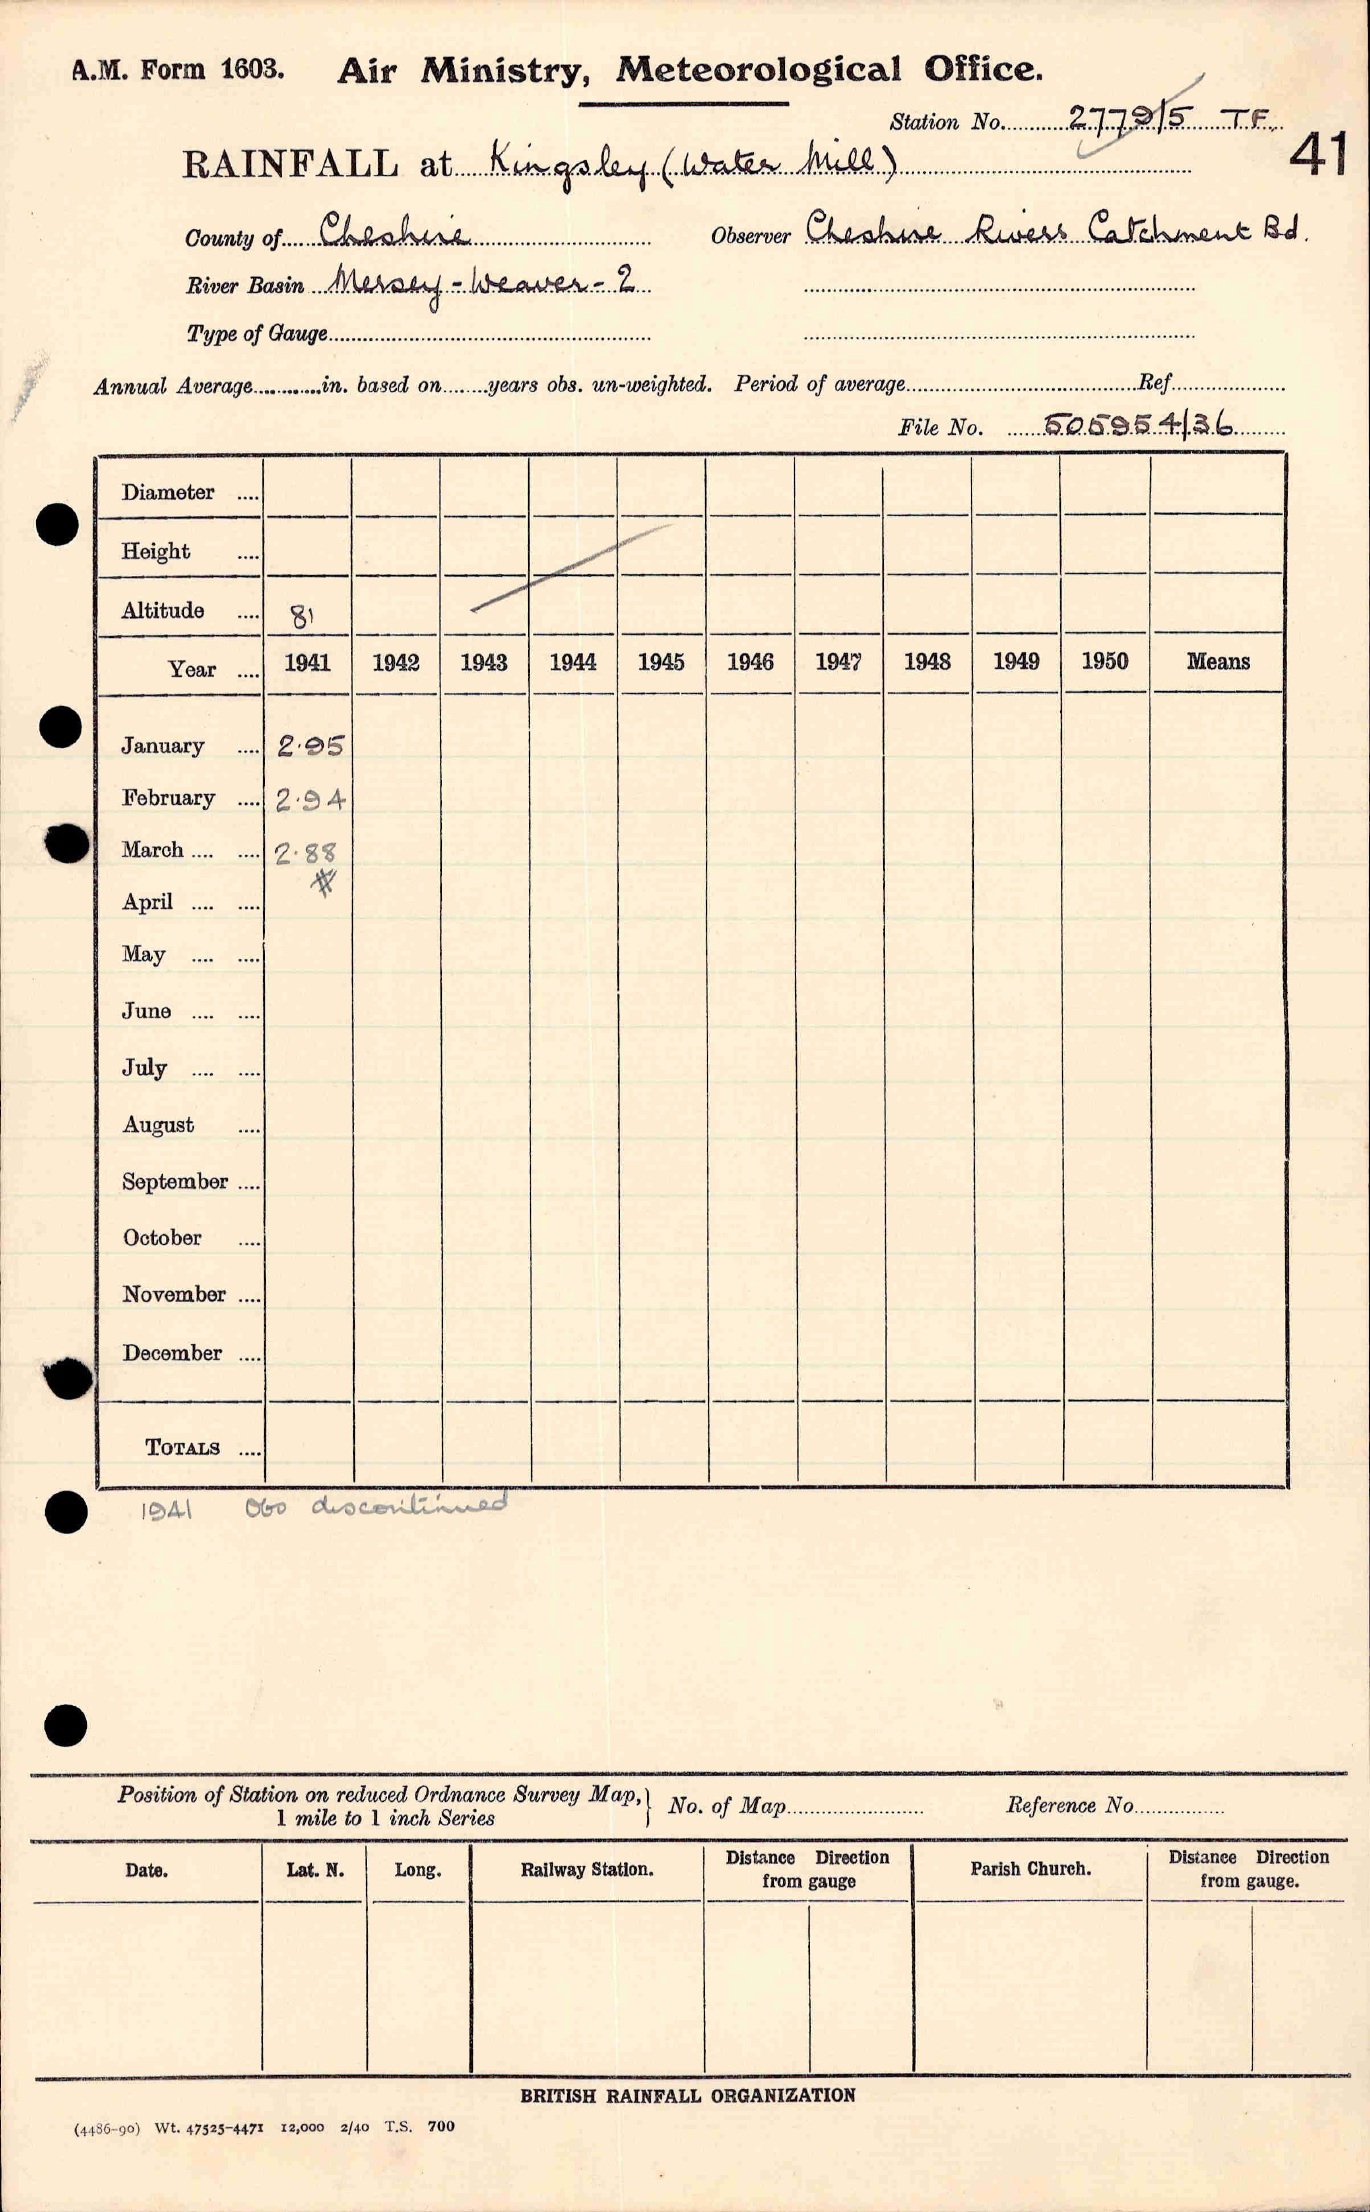 A.M. Form 1603. Air Ministry, Meteorological Office.
Station No. 2779/5 T.F.
41
RAINFALL at Kingsley (Water Mill)
County of Cheshire Observer Cheshire Rivers Catchment Bd.
River Basin Mersey - Weaver - 2
Type of Gauge
Annual Average in. based on years obs. un-weighted. Period of average Ref
File No. 505954/36
Diameter ....
Height ....
Altitude .... 81
Year .... 1941 1942 1943 1944 1945 1946 1947 1948 1949 1950 Means
January .... 2.95
February .... 2.94
March .... .... 2.88
#
April .... ....
May .... ....
June .... ....
July .... ....
August ....
September ....
October ....
November ....
December ....
TOTALS ....
1941 Obs discontinued
Position of Station on reduced Ordnance Survey Map, } No. of Map Reference No.
1 mile to 1 inch Series
Date. Lat. N. Long. Railway Station. Distance Direction from gauge Parish Church. Distance Direction from gauge.
BRITISH RAINFALL ORGANIZATION
(4486-90) Wt. 47525-4471 12,000 2/40 T.S. 700